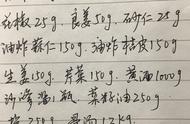 花椒25g、良姜50g、砂仁25g
油炸蒜仁150g、油炸桔皮150g
生姜150g、芹菜150g、黄酒1000g
1瓶、菜籽油250g
盐250g 1.2kg